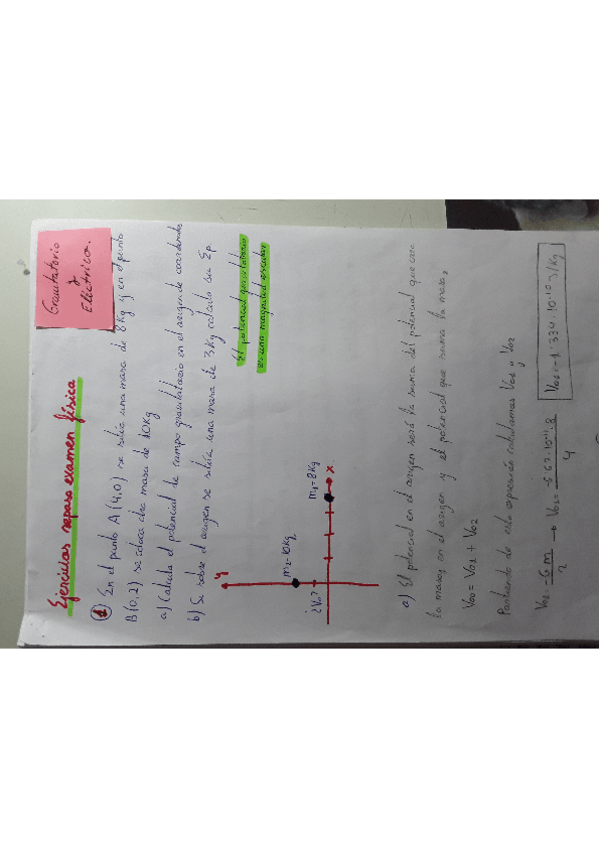 Ejercicios repaso examen física
Gravitatorio
y
Eléctrico.
1 En el punto A(4,0) se sitúa una masa de 8Kg y en el punto
B(0,2) se coloca otra masa de 10Kg
a) Calcula el potencial de campo gravitatorio en el origen de coordenadas
b) Se sobre el origen se sitúa una masa de 3Kg calcula su Ep.
El potencial gravitatorio
es una magnitud escalar
y
m2=10Kg
¿Vo?
m1=8Kg
x
a) El potencial en el origen será la suma del potencial que crea
la masa1 en el origen y el potencial que suma la masa2
V00 = V01 + V02
Partiendo de esta expresión calculamos V01 y V02
V01 = -G·m/r → V01 = -6'67·10⁻¹¹·8/4
V01 = -1'334·10⁻¹⁰ J/Kg